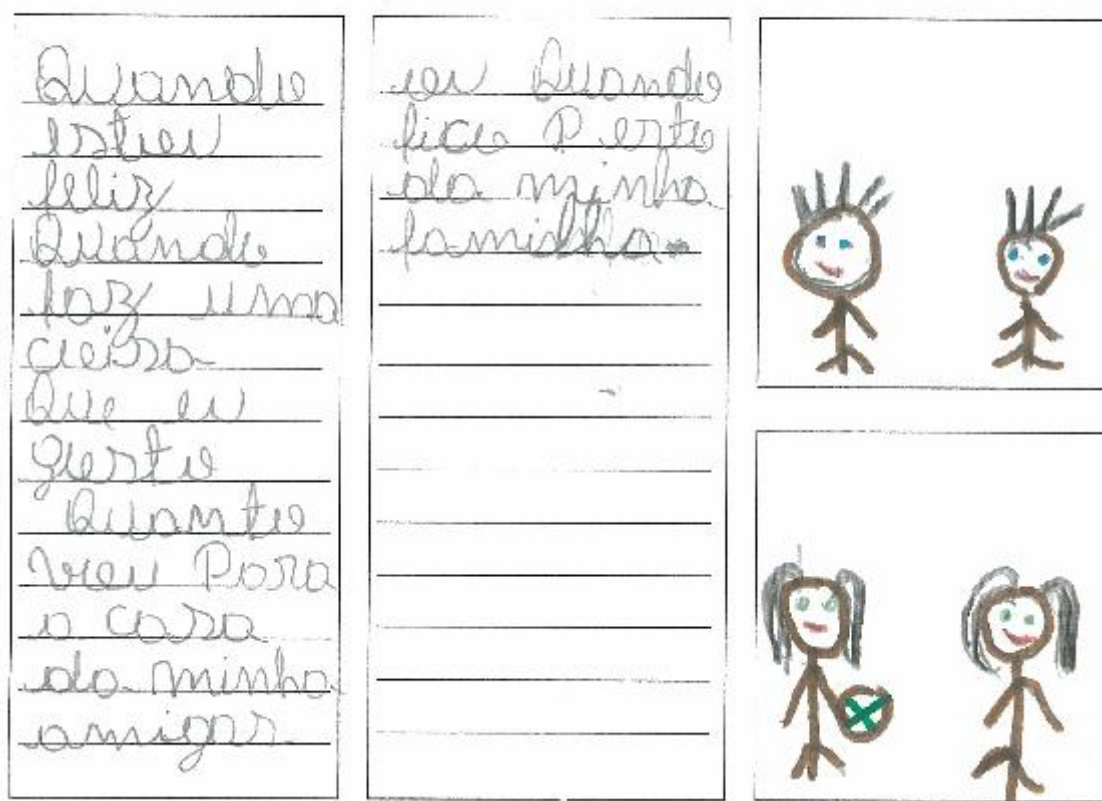 Quando
estou
feliz
Quando
faz uma
coisa
Que eu
gosto
Quanto
vou Para
a casa
da minha
amigas
eu Quando
fico P erto
da minha
familha.